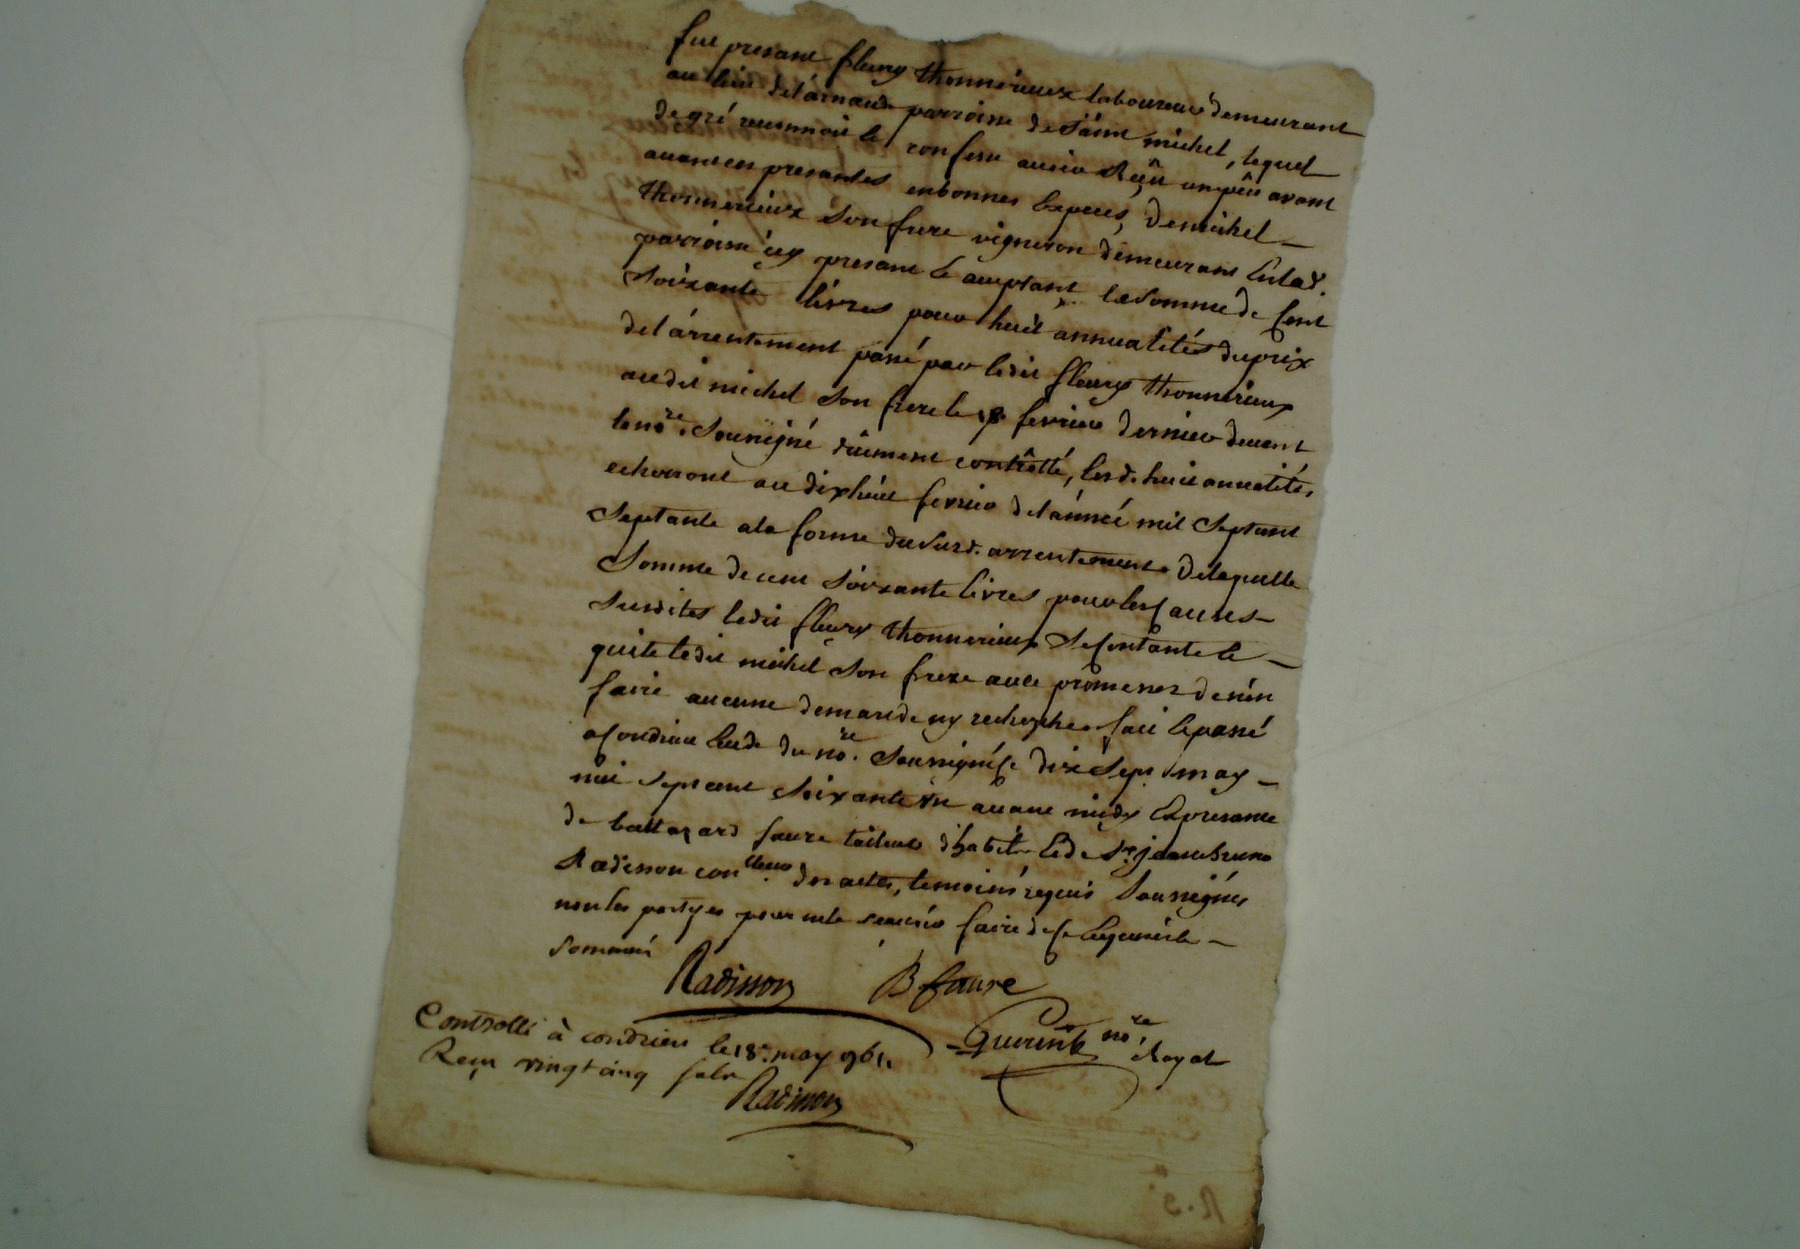 fut presant fleury thonnérieux laboureur demeurant
au lieu de l'arnaude parroisse de saint michel, lequel
de gré reconnoit et confesse auoir Reçû un peû avant
auant ces presantes en bonnes Especes, de michel
thonnerieux son frere vigneron demeurant En lad.
parroisse icy presant et acceptant la somme de Cent
soixante livres pour huit annualités du prix
de l'arrentement passé par ledit fleury thonnerieux
audit michel son frere le 18 fevrier dernier devant
le nore. soussigné dûement contrôllé, lesd. huit annualités
echerront au dixhuit fevrier de l'année mil septcent
septante a la forme du susd. arrentement de laquelle
somme de cent soixante livres pour les Causes
susdites ledit fleury thonnerieux se Contante et
quite ledit michel son frere avec promesses de n'en
faire aucune demande ny recherche fait et passé
a Condrieu Etude du nore. soussigné le dix sept may
mil sept cent soixante un avant midy En presance
de baltazard faure tailleur d'habit Et de Sr. jean bruno
Radisson conlleur des actes, temoins requis soussignés
non les partyes pour ne le sçavoir faire de ce Enquis et
sommés
Radisson B faure
Guerin nore Royal
Controllé à condrieu le 18e. may 961.
Reçu vingt cinq sols
Radisson
R. 5.